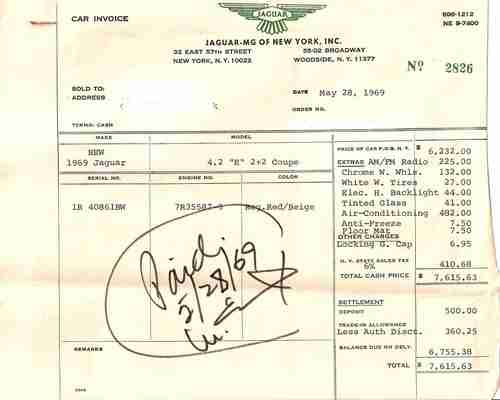 CAR INVOICE
JAGUAR
JAGUAR-MG OF NEW YORK, INC.
32 EAST 57TH STREET
NEW YORK, N.Y. 10022
58-02 BROADWAY
WOODSIDE, N.Y. 11377
Nº 2826
SOLD TO:
ADDRESS
DATE May 28, 1969
ORDER NO.
TERMS: CASH
MAKE MODEL
NEW
1969 Jaguar 4.2 "E" 2+2 Coupe
SERIAL NO. ENGINE NO. COLOR
1R 40861BW 7R35587-9 Reg.Red/Beige
PRICE OF CAR F.O.B. N.Y. $ 6,232.00
EXTRAS AM/FM Radio 225.00
Chrome W. Whls. 132.00
White W. Tires 27.00
Elec. H. Backlight 44.00
Tinted Glass 41.00
Air-Conditioning 482.00
Anti-Freeze 7.50
Floor Mat 7.50
OTHER CHARGES
Locking G. Cap 6.95
N.Y. STATE SALES TAX
6% 410.68
TOTAL CASH PRICE $ 7,615.63
Paid
5/28/69
SETTLEMENT
DEPOSIT 500.00
TRADE-IN ALLOWANCE
Less Auth Disct. 360.25
BALANCE DUE ON DELY. 6,755.38
TOTAL $ 7,615.63
REMARKS